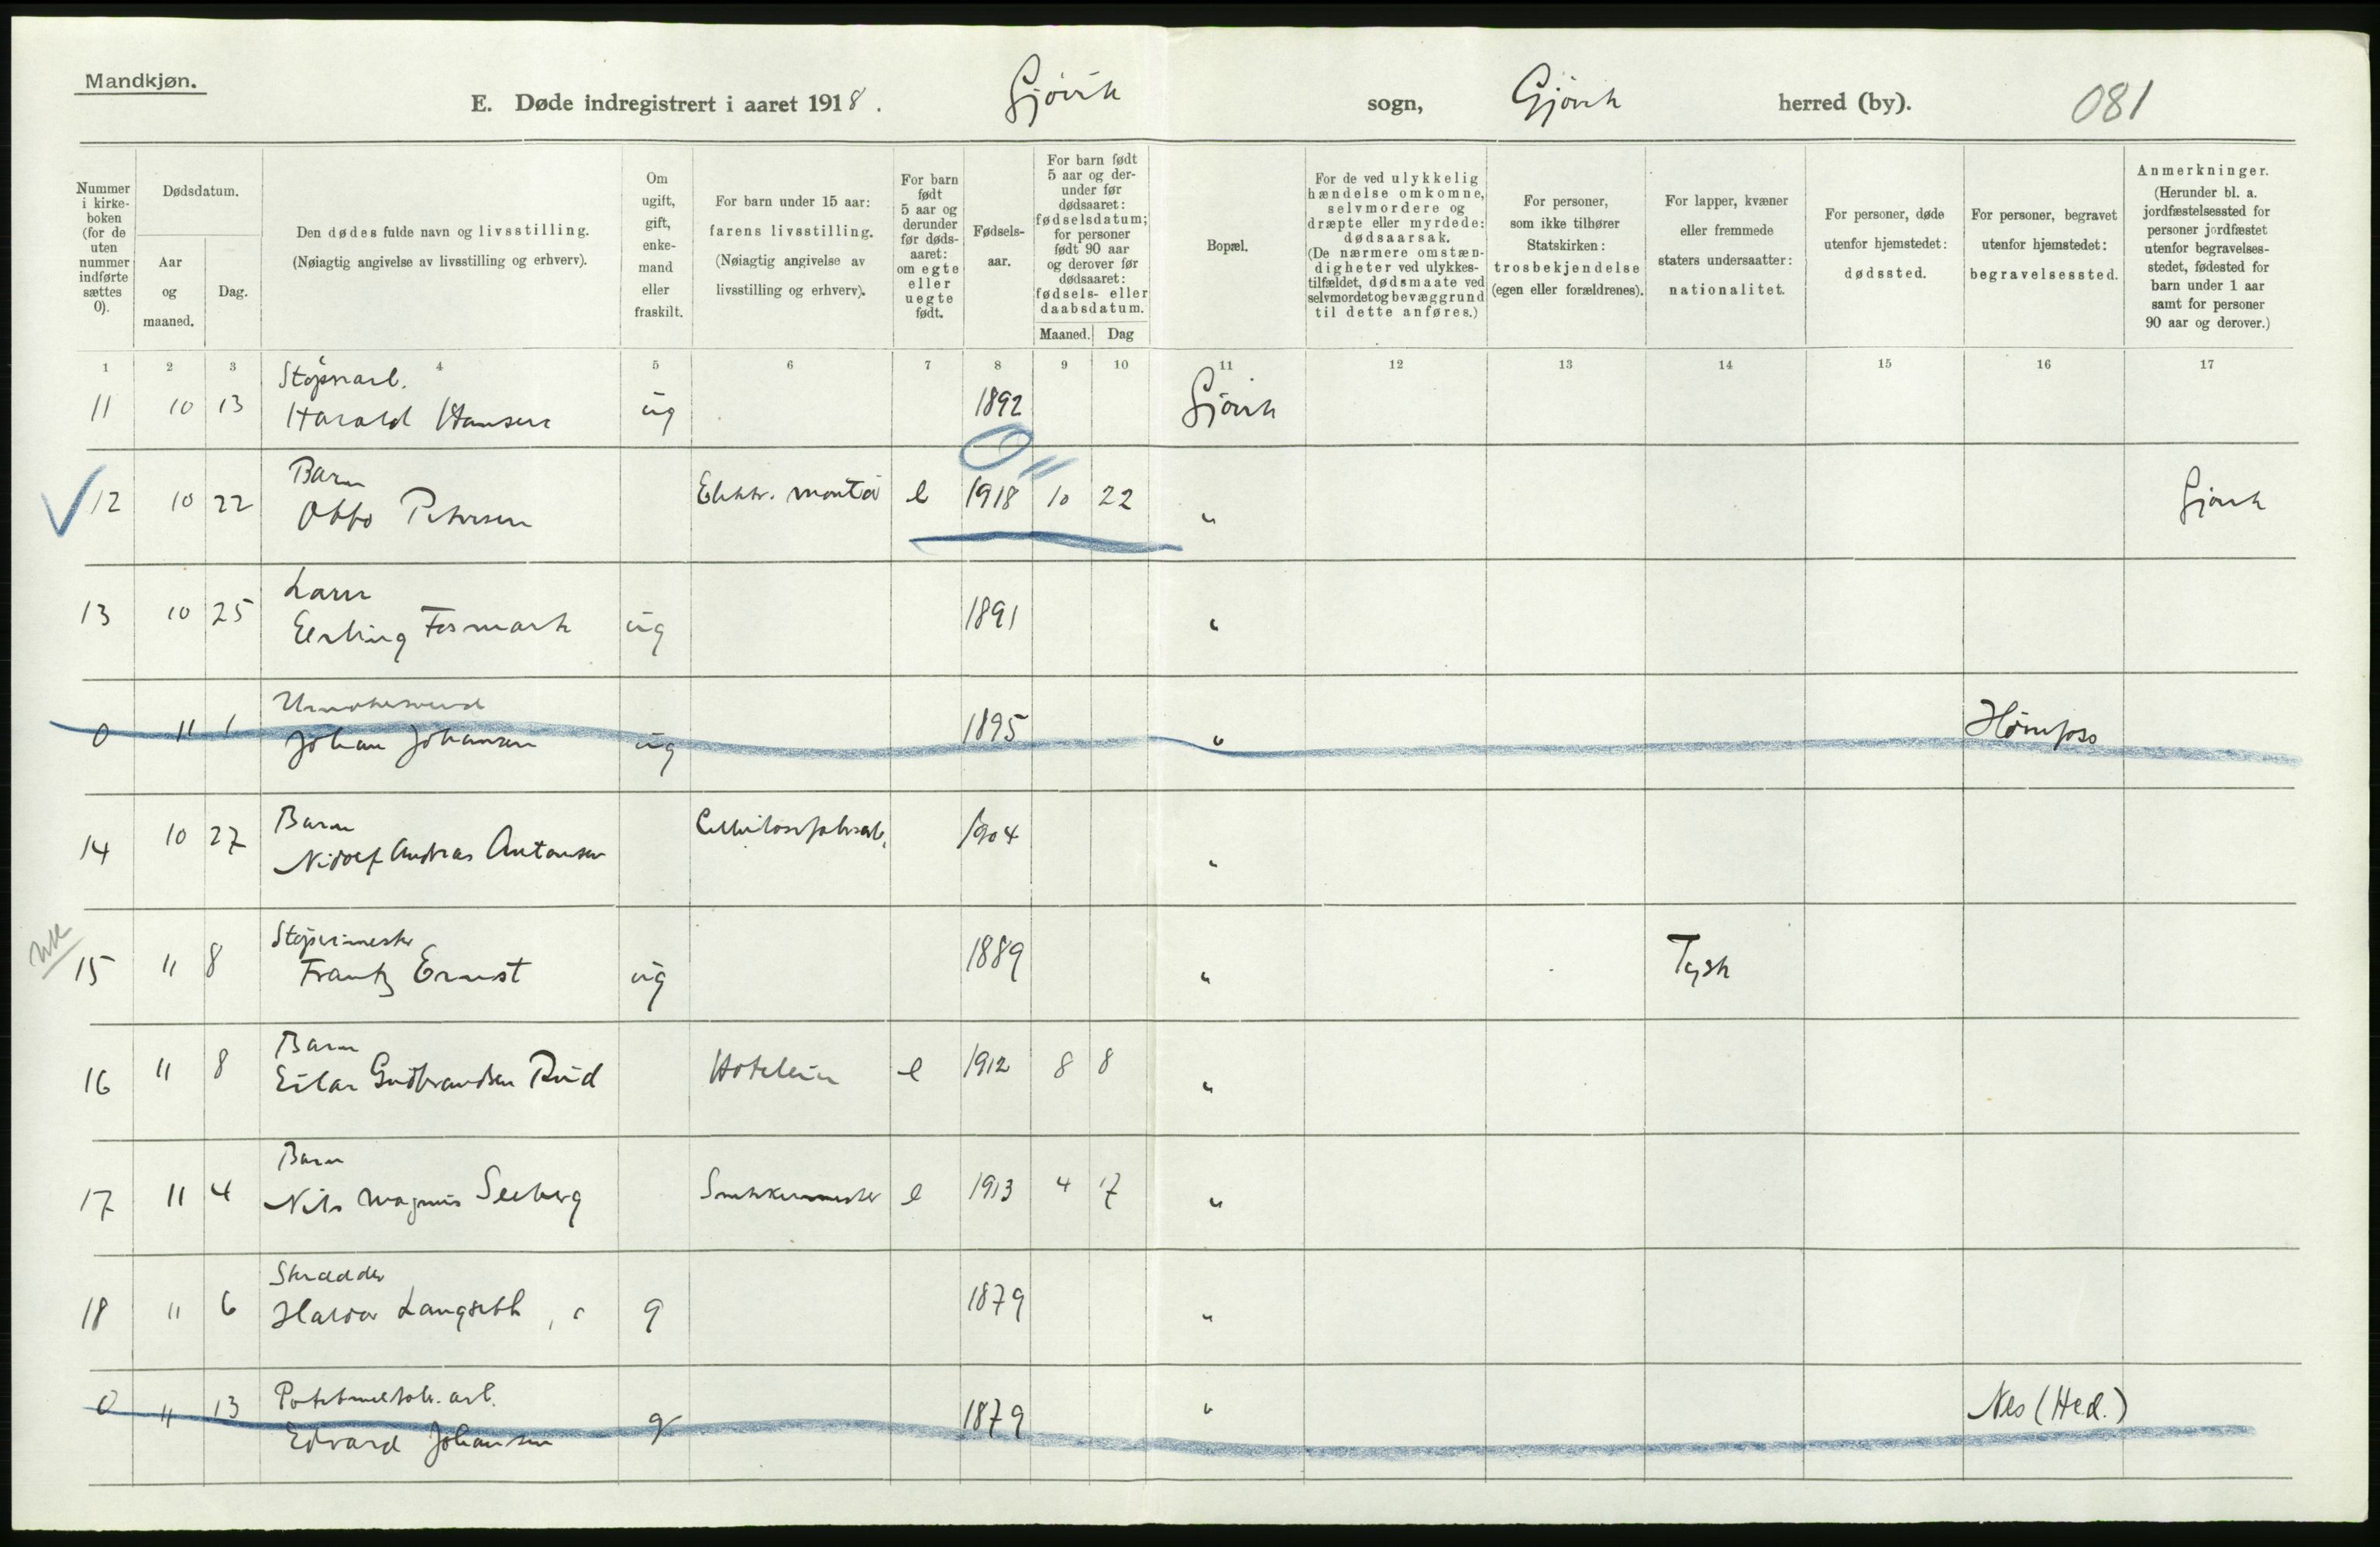 Mandkjøn.
E. Døde indregistrert i aaret 1918. Gjøvik sogn, Gjøvik herred (by). 081
Nummer i kirkeboken (for de uten nummer indførte sættes 0).
Dødsdatum.
Aar og maaned.
Dag.
Den dødes fulde navn og livsstilling.
(Nøiagtig angivelse av livsstilling og erhverv).
Om ugift, gift, enkemand eller fraskilt.
For barn under 15 aar: farens livsstilling.
(Nøiagtig angivelse av livsstilling og erhverv).
For barn født 5 aar og derunder før dødsaaret: om egte eller uegte født.
Fødselsaar.
For barn født 5 aar og derunder før dødsaaret: fødselsdatum; for personer født 90 aar og derover før dødsaaret: fødsels- eller daabsdatum.
Maaned. Dag
Bopæl.
For de ved ulykkelig hændelse omkomne, selvmordere og dræpte eller myrdede: dødsaarsak.
(De nærmere omstændigheter ved ulykkestilfældet, dødsmaate ved selvmordet og bevæggrund til dette anføres.)
For personer, som ikke tilhører Statskirken: trosbekjendelse (egen eller forældrenes).
For lapper, kvæner eller fremmede staters undersaatter: nationalitet.
For personer, døde utenfor hjemstedet: dødssted.
For personer, begravet utenfor hjemstedet: begravelsessted.
Anmerkninger.
(Herunder bl. a. jordfæstelsessted for personer jordfæstet utenfor begravelsesstedet, fødested for barn under 1 aar samt for personer 90 aar og derover.)
1 2 3 4 5 6 7 8 9 10 11 12 13 14 15 16 17
Støperiarb.
11 10 13 Harald Hansen ug 1892 Gjøvik
Barn
12 10 22 Otto Petersen Elektr. montør e 1918 10 22 " Gjøvik
13 10 25 Erling Fosmark ug 1891 "
0 11 1 Johan Johansen ug 1895 " Hønefoss
Barn
14 10 27 Nidolf Andreas Antonsen Cellulosefabrarb. 1904 "
Støperimester
15 11 8 Frantz Ernst ug 1889 " Tysk
Barn
16 11 8 Eilar Gudbrandsen Rud Hoteleier e 1912 8 8 "
Barn
17 11 4 Nils Magnus Seeberg Snekkermester e 1913 4 17 "
Skrædder
18 11 6 Halvor Langseth g 1879 "
0 11 13 Potetmelfabr. arb.
Edvard Johansen g 1879 " Nes (Hed.)